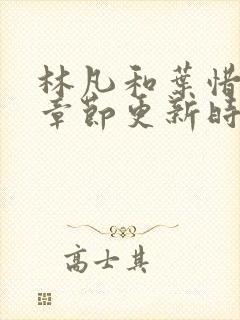 林凡和葉惜
章節更新時
高士其